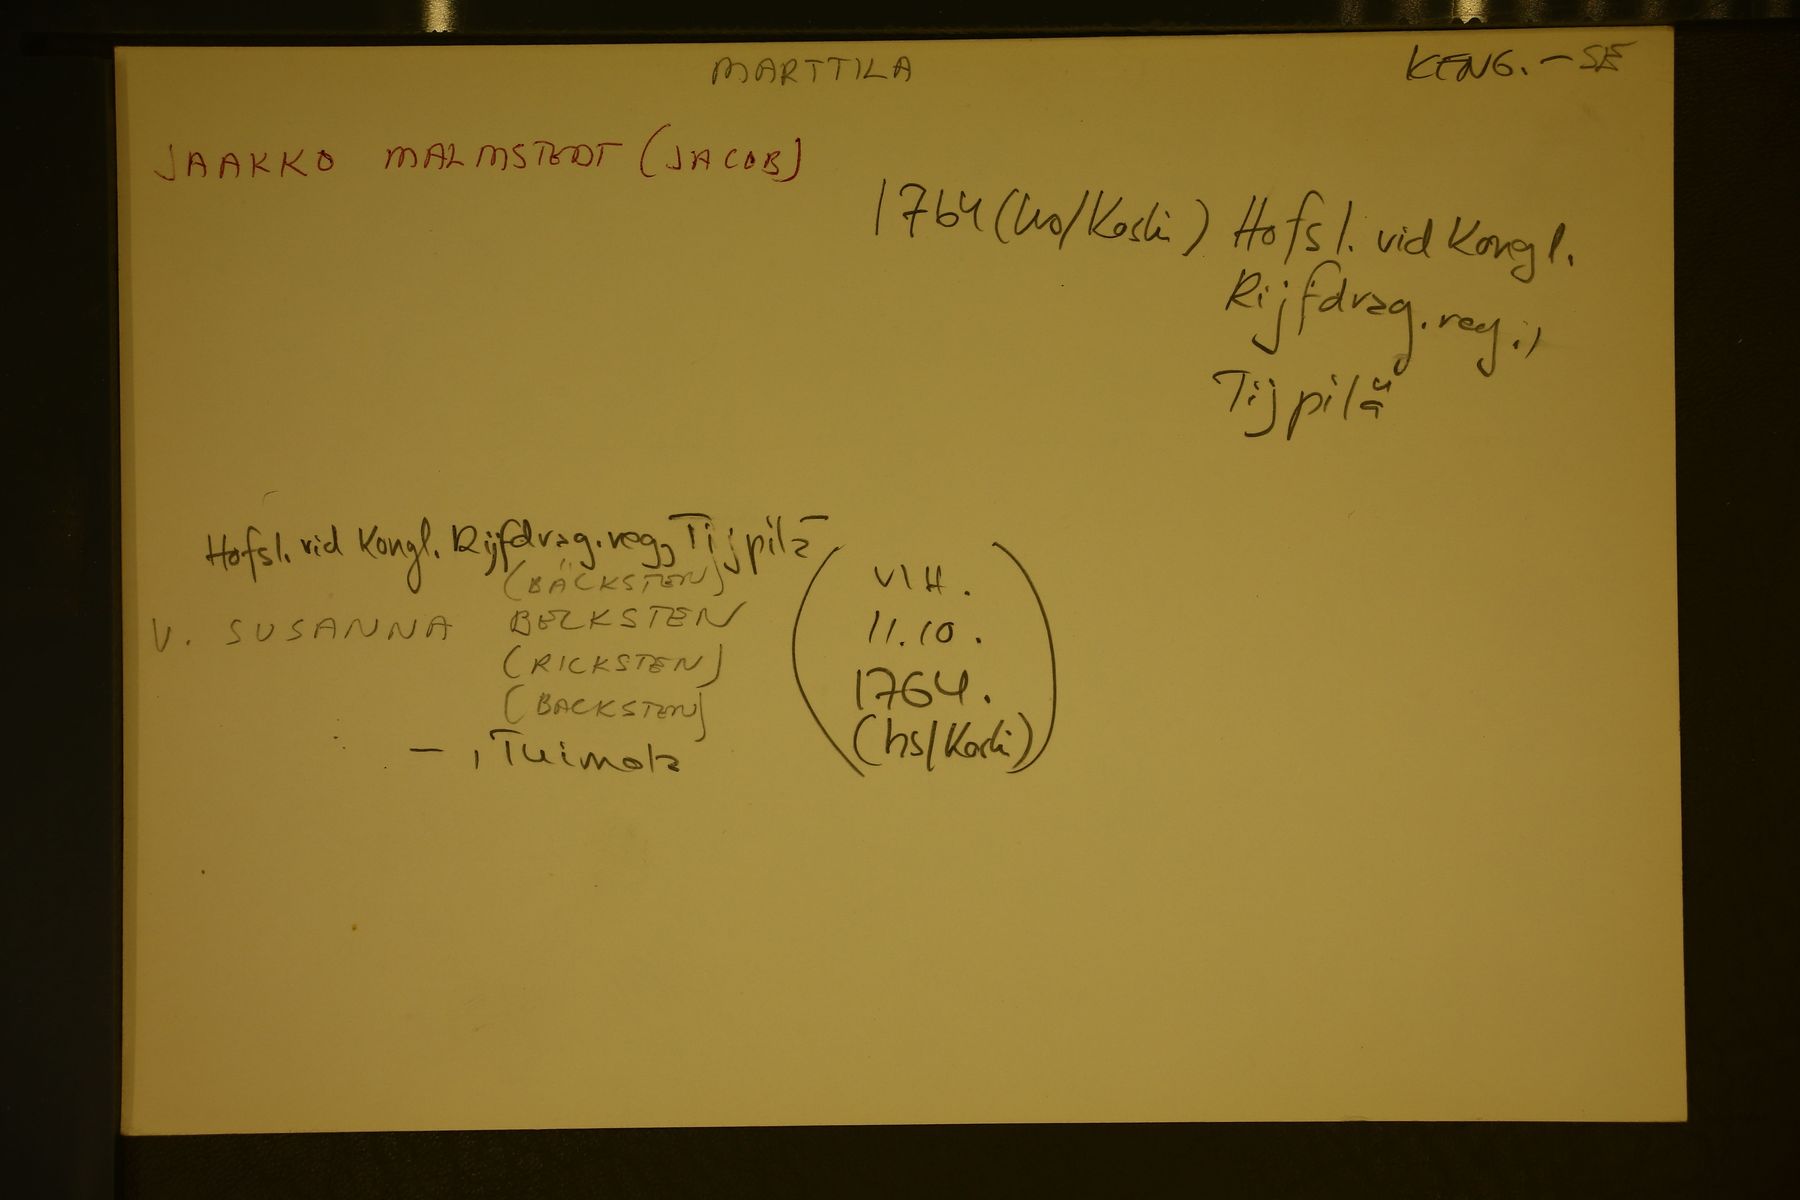 MARTTILA
KENG. - SE
JAAKKO MALMSTEDT (JACOB)
1764 (hs/Koski) Hofsl. vid Kongl.
Rijfdrag. reg.,
Tijpilä
Hofsl. vid Kongl. Rijfdrag. reg, Tijpilä
(BÄCKSTEN)
V. SUSANNA BECKSTEN
(RICKSTEN)
(BACKSTEN)
— , Tuimala
VIH.
11.10.
1764.
(hs/Koski)